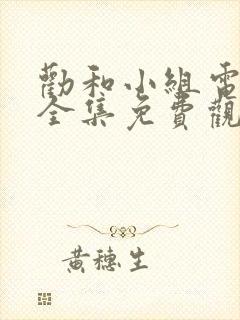 勸和小組電
全集免費觀
黃穗生